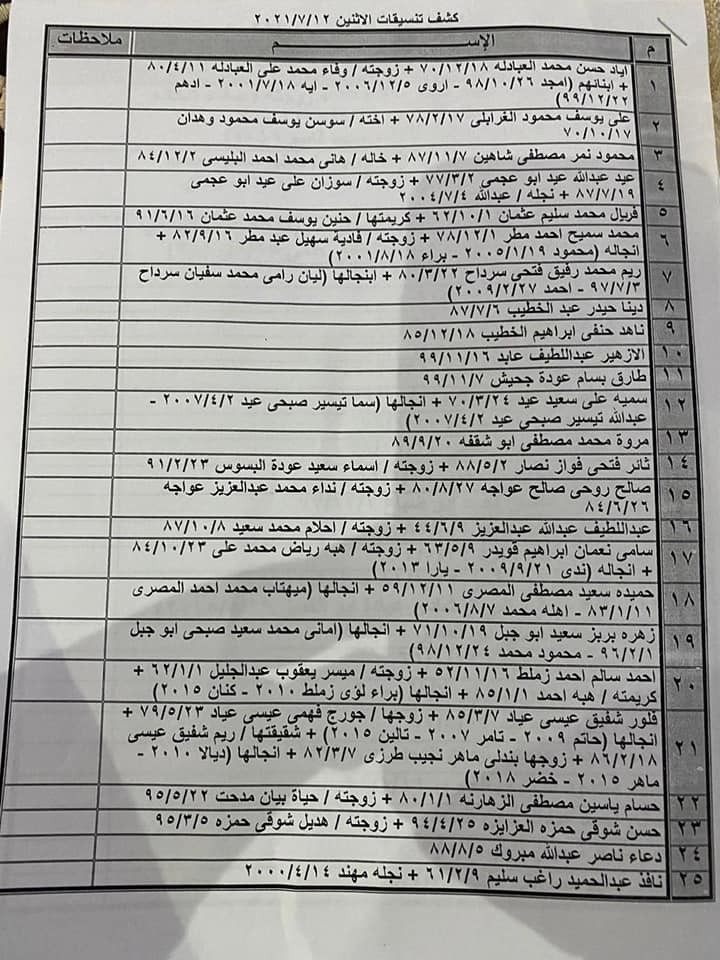 كشف تنسيقات الاثنين ٢٠٢١/٧/١٢
م الإســـــم ملاحظات
١ اياد حسن محمد العبادله ٧٠/١٢/١٨ + زوجته / وفاء محمد على العبادله ٨٠/٤/١١
+ ابنائهم (امجد ٩٨/١٠/٢٦ - اروى ٢٠٠٦/١٢/٥ - ايه ٢٠٠١/٧/١٨ - ادهم
٩٩/١٢/٢٢)
٢ على يوسف محمود الغرابلى ٧٨/٢/١٧ + اخته / سوسن يوسف محمود وهدان
٧٠/١٠/١٧
٣ محمود نمر مصطفى شاهين ٨٧/١١/٧ + خاله / هانى محمد احمد البليسى ٨٤/١٢/٢
٤ عيد عبدالله عيد ابو عجمى ٧٧/٣/٢ + زوجته / سوزان على عيد ابو عجمى
٨٧/٧/١٩ + نجله / عبدالله ٢٠٠٤/٧/٤
٥ فريال محمد سليم عثمان ٦٢/١٠/١ + كريمتها / حنين يوسف محمد عثمان ٩١/٦/١٦
٦ محمد سميح احمد مطر ٧٨/١٢/١ + زوجته / فادية سهيل عبد مطر ٨٢/٩/١٦ +
انجاله (محمود ٢٠٠٥/١/١٩ - براء ٢٠٠١/٨/١٨)
٧ ريم محمد رفيق فتحى سرداح ٨٠/٣/٢٢ + ابنجالها (ليان رامى محمد سفيان سرداح
٩٧/٧/٣ - احمد ٢٠٠٩/٢/٢٧)
٨ دينا حيدر عبد الخطيب ٨٧/٧/٦
٩ ناهد حنفى ابراهيم الخطيب ٨٥/١٢/١٨
١٠ الازهير عبداللطيف عابد ٩٩/١١/١٦
١١ طارق بسام عودة جحيش ٩٩/١١/٧
١٢ سميه على سعيد عيد ٧٠/٣/٢٤ + انجالها (سما تيسير صبحى عيد ٢٠٠٧/٤/٢ -
عبدالله تيسير صبحى عيد ٢٠٠٧/٤/٢)
١٣ مروة محمد مصطفى ابو شقفه ٨٩/٩/٢٠
١٤ ثائر فتحى فواز نصار ٨٨/٥/٢ + زوجته / اسماء سعيد عودة البسوس ٩١/٢/٢٣
١٥ صالح روحى صالح عواجه ٨٠/٨/٢٧ + زوجته / نداء محمد عبدالعزيز عواجه
٨٤/٦/٢٦
١٦ عبداللطيف عبدالله عبدالعزيز ٤٤/٦/٩ + زوجته / احلام محمد سعيد ٨٧/١٠/٨
١٧ سامى نعمان ابراهيم قويدر ٦٣/٥/٩ + زوجته / هبه رياض محمد على ٨٤/١٠/٢٣
+ انجاله (ندى ٢٠٠٩/٩/٢١ - يارا ٢٠١٣)
١٨ حميده سعيد مصطفى المصرى ٥٩/١٢/١١ + انجالها (ميهتاب محمد احمد المصرى
٨٣/١/١١ - اهله محمد ٢٠٠٦/٨/٧)
١٩ زهره بربز سعيد ابو جبل ٧١/١٠/١٩ + انجالها (امانى محمد سعيد صبحى ابو جبل
٩٦/٢/١ - محمود محمد ٩٨/١٢/٢٤)
٢٠ احمد سالم احمد زملط ٥٢/١١/١٦ + زوجته / ميسر يعقوب عبدالجليل ٦٢/١/١ +
كريمته / هبه احمد ٨٥/١/١ + انجالها (براء لؤى زملط ٢٠١٠ - كنان ٢٠١٥)
٢١ فلور شفيق عيسى عياد ٨٥/٣/٧ + زوجها / جورج فهمى عيسى عياد ٧٩/٥/٢٣ +
انجالها (حاتم ٢٠٠٩ - تامر ٢٠٠٧ - تالين ٢٠١٥) + شقيقتها / ريم شفيق عيسى
٨٦/٢/١٨ + زوجها بندلى ماهر نجيب طرزى ٨٢/٣/٧ + انجالها (ديالا ٢٠١٠ -
ماهر ٢٠١٥ - خضر ٢٠١٨)
٢٢ حسام ياسين مصطفى الزهارنه ٨٠/١/١ + زوجته / حياة بيان مدحت ٩٥/٥/٢٢
٢٣ حسن شوقى حمزه العزايزه ٩٤/٤/٢٥ + زوجته / هديل شوقى حمزه ٩٥/٣/٥
٢٤ دعاء ناصر عبدالله مبروك ٨٨/٨/٥
٢٥ نافذ عبدالحميد راغب سليم ٦١/٢/٩ + نجله مهند ٢٠٠٠/٤/١٤